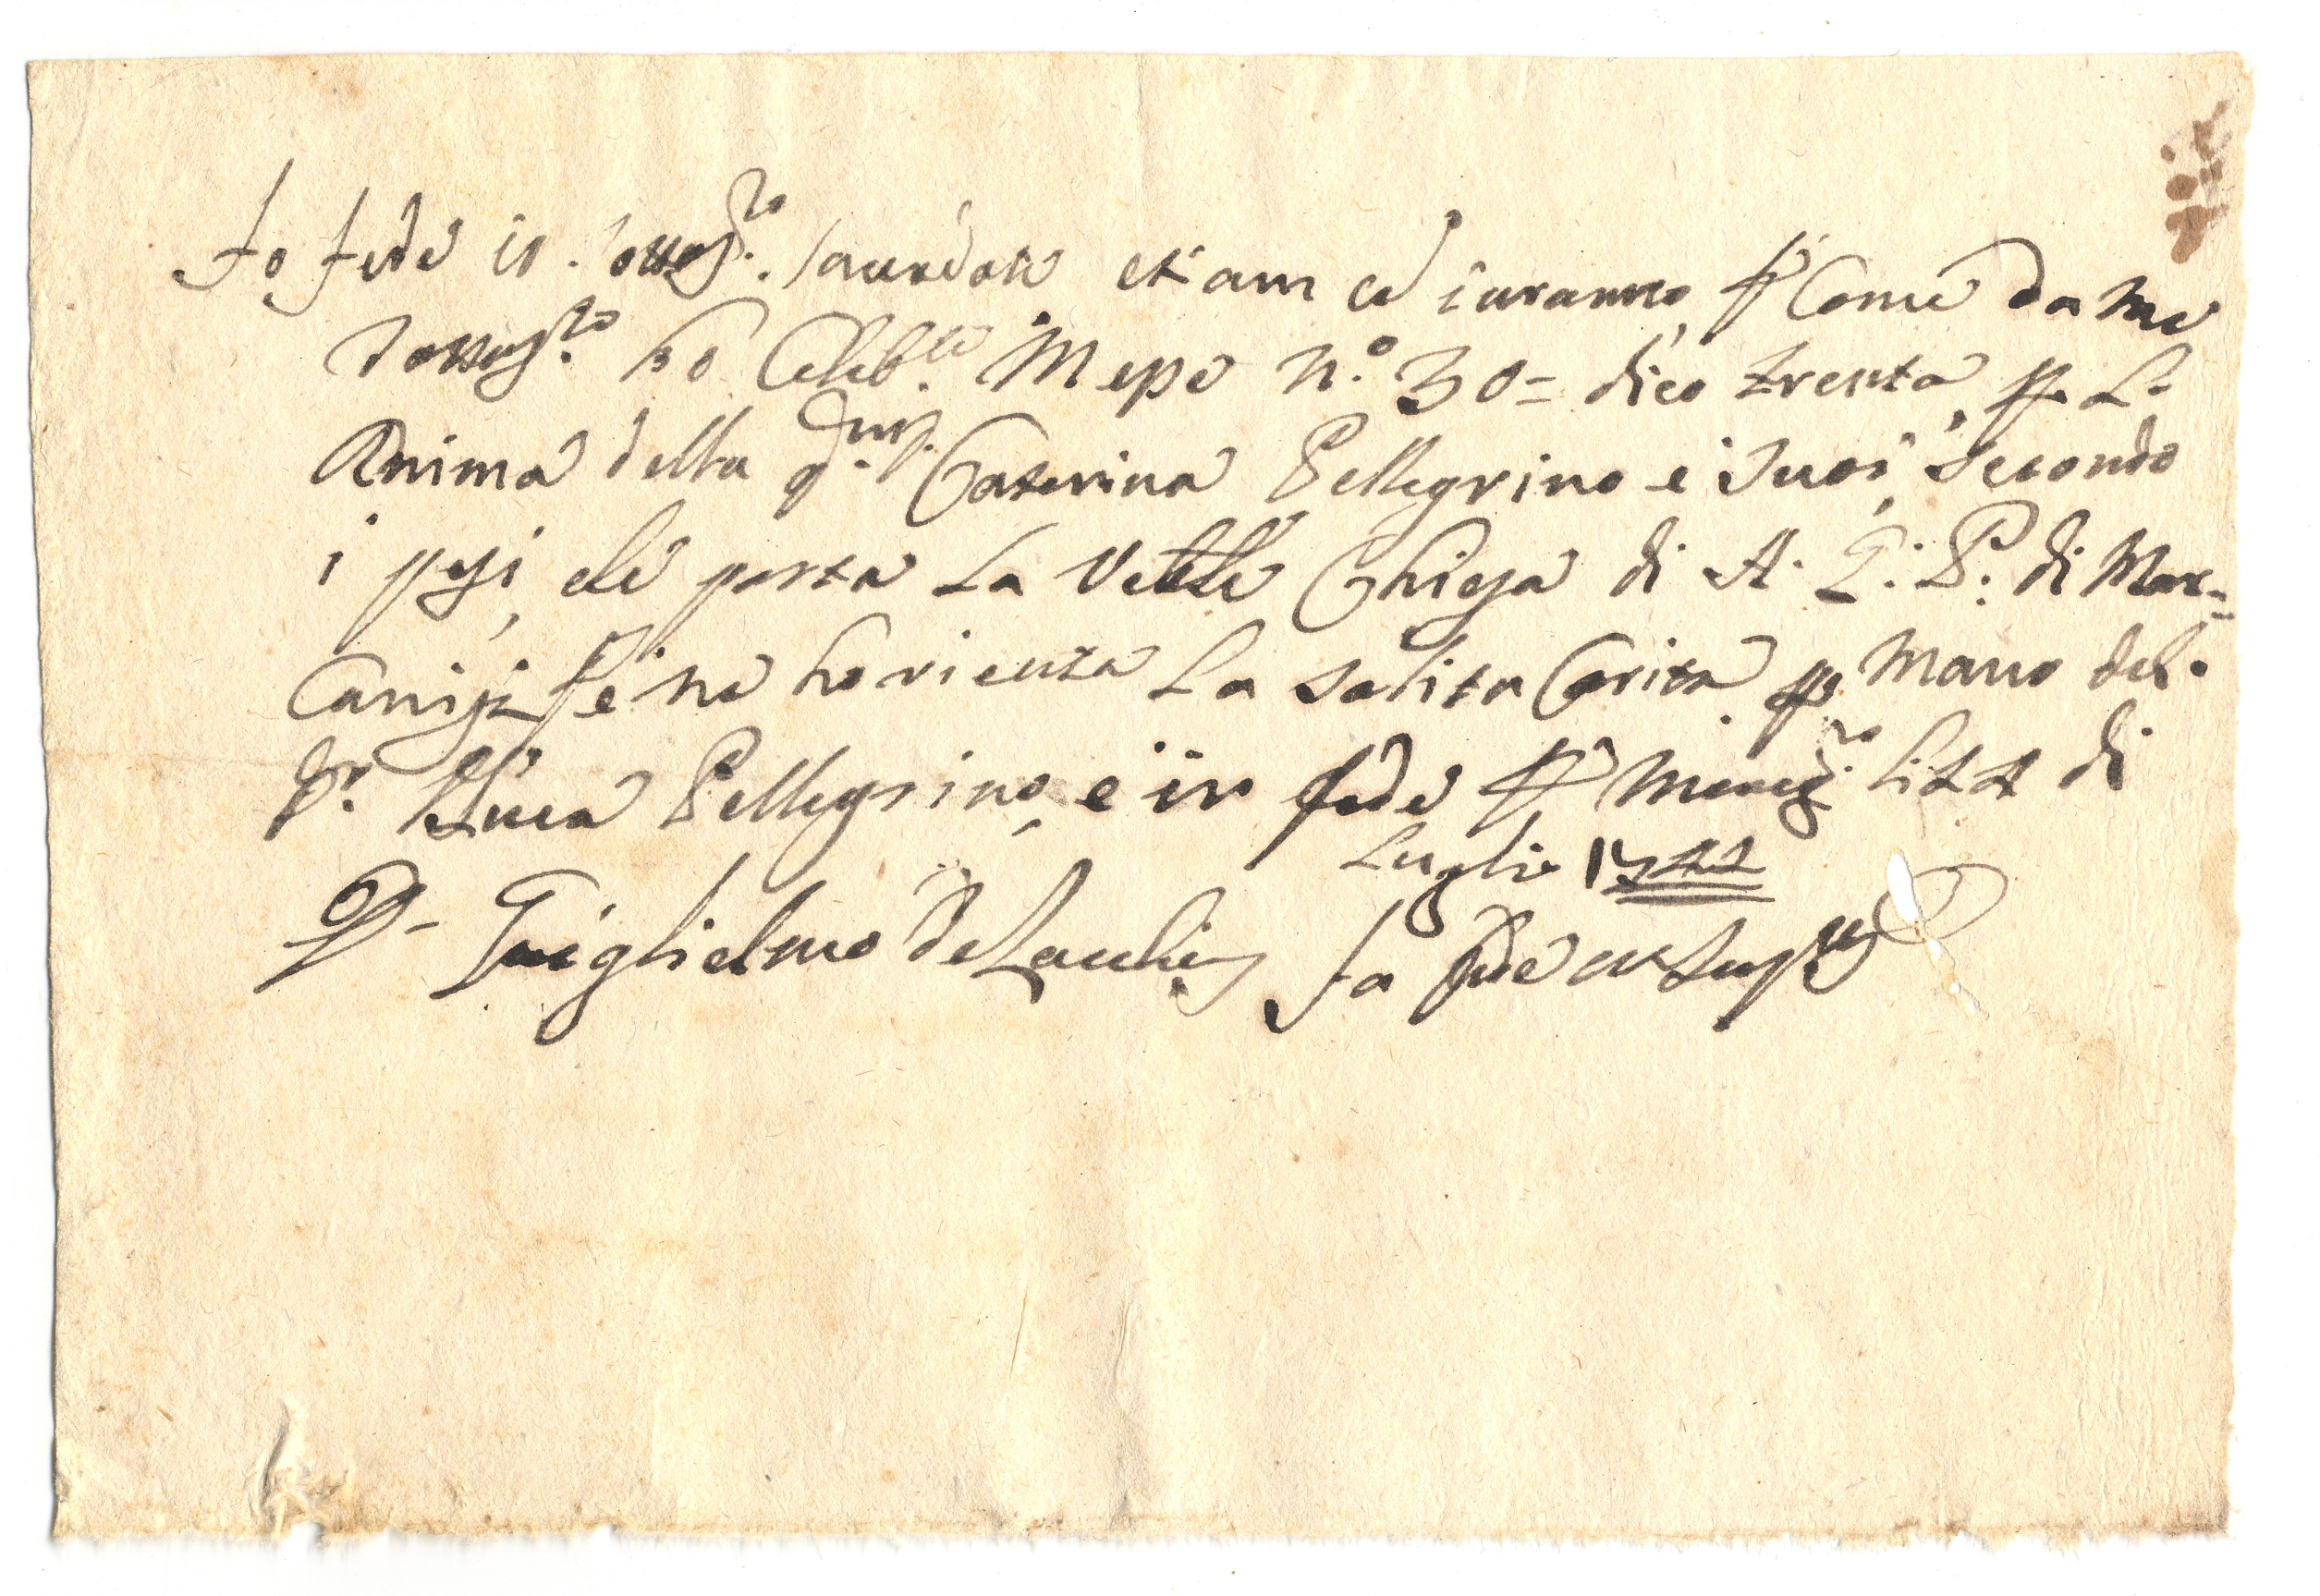 Fo fede io sottos.to sacerdote etiam cu iuram.to, come da me
sottos.to ho celeb.te Messe n.o 30= dico trenta, p. l'
Anima della q.m Caterina Pellegrino e suoi, secondo
i pesi, che porta la Ven.le Chiesa di A. G. P. di Mar=
canisi, e ne ho ricevuta la solita Carità p. mano del
Sr. Luca Pellegrino, e in fede Marcig.no li di
Luglio
D. Guiglielmo fa fede ut sup.a